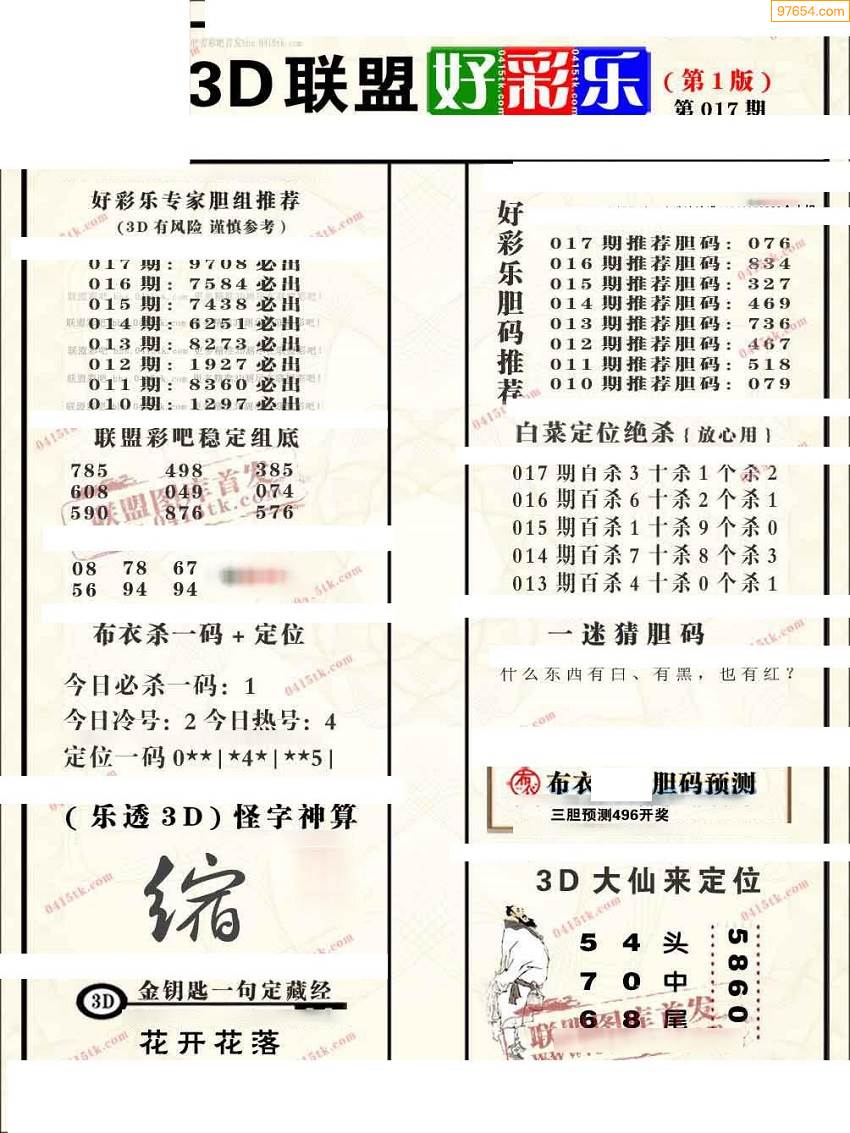 97654.com
3D联盟好彩乐
(第1版)
第017期
好彩乐专家胆组推荐
(3D有风险 谨慎参考)
017期:9708必出
016期:7584必出
015期:7438必出
014期:6251必出
013期:8273必出
012期:1927必出
011期:8360必出
010期:1297必出
联盟彩吧稳定组底
785 498 385
608 049 074
590 876 576
08 78 67
56 94 94
布衣杀一码+定位
今日必杀一码:1
今日冷号:2 今日热号:4
定位一码 0**|*4*|**5|
(乐透3D)怪字神算
缩
3D 金钥匙一句定藏经
花开花落
好彩乐胆码推荐
017期推荐胆码:076
016期推荐胆码:834
015期推荐胆码:327
014期推荐胆码:469
013期推荐胆码:736
012期推荐胆码:467
011期推荐胆码:518
010期推荐胆码:079
白菜定位绝杀{放心用}
017期百杀3十杀1个杀2
016期百杀6十杀2个杀1
015期百杀1十杀9个杀0
014期百杀7十杀8个杀3
013期百杀4十杀0个杀1
一迷猜胆码
什么东西有白、有黑,也有红?
布衣 胆码预测
三胆预测496开奖
3D大仙来定位
5 4 头
7 0 中
6 8 尾
5860
联盟图库首发
0415tk.com